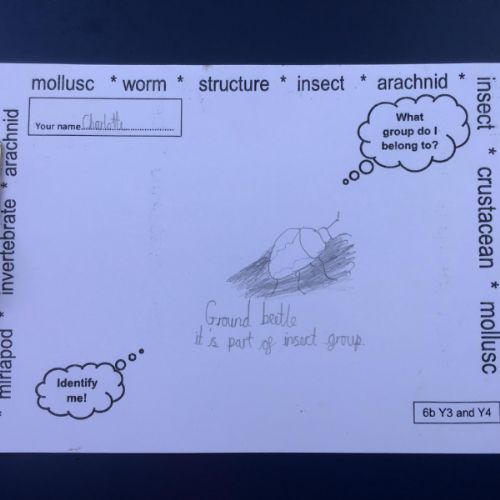 mollusc * worm * structure * insect * arachnid *
insect * crustacean * mollusc
miriapod * invertebrate * arachnid
Your name Charlotte
What
group do I
belong to?
Ground beetle
it's part of insect group.
Identify
me!
6b Y3 and Y4